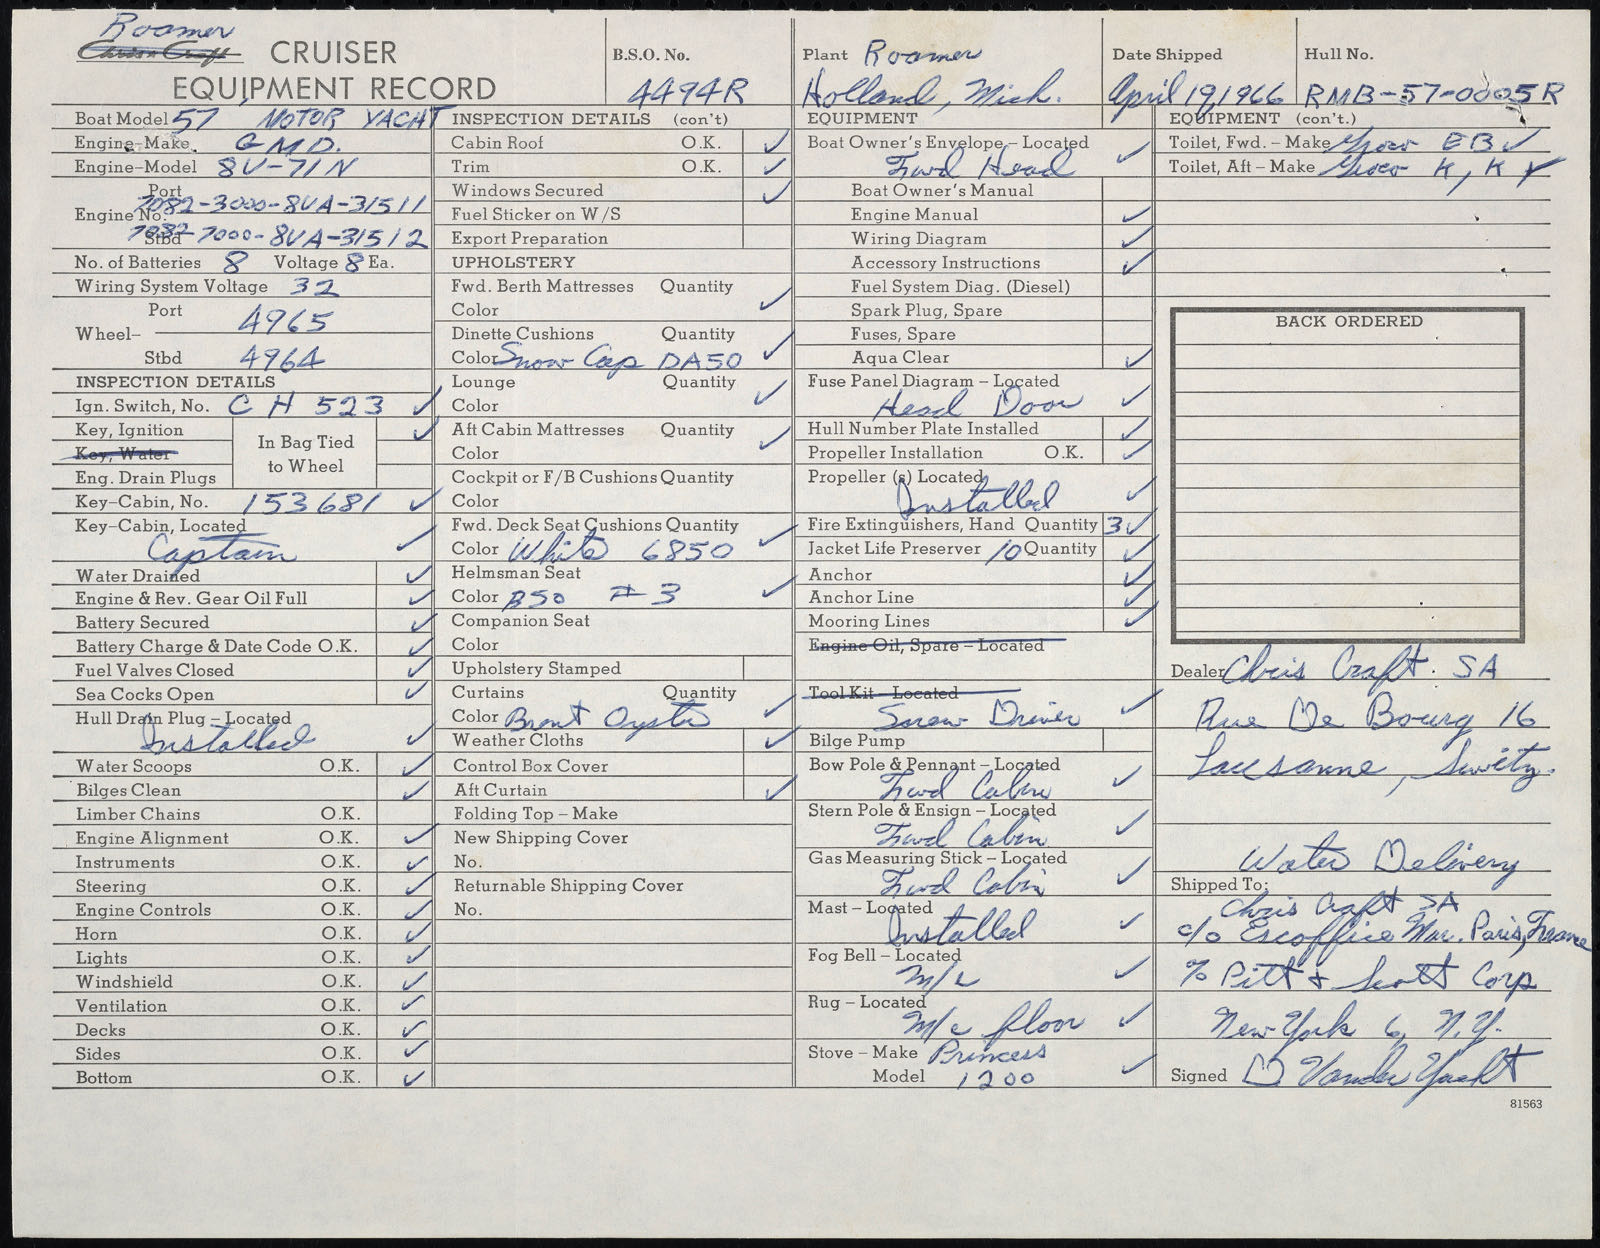 Roamer
Chris Craft CRUISER
EQUIPMENT RECORD
B.S.O. No.
4494R
Plant Roamer
Holland, Mich.
Date Shipped
April 19, 1966
Hull No.
RMB-57-0005R
Boat Model 57 MOTOR YACHT
Engine-Make G M D.
Engine-Model 8V-71N
Port
7082-3000-8VA-31511
Engine No.
Stbd 7082-7000-8VA-31512
No. of Batteries 8 Voltage 8 Ea.
Wiring System Voltage 32
Port 4965
Wheel–
Stbd 4964
INSPECTION DETAILS
Ign. Switch, No. C H 523 ✓
Key, Ignition ✓
Key, Water
In Bag Tied
to Wheel
Eng. Drain Plugs
Key-Cabin, No. 153681 ✓
Key-Cabin, Located
Captain ✓
Water Drained ✓
Engine & Rev. Gear Oil Full ✓
Battery Secured ✓
Battery Charge & Date Code O.K. ✓
Fuel Valves Closed ✓
Sea Cocks Open ✓
Hull Drain Plug – Located
Installed ✓
Water Scoops O.K. ✓
Bilges Clean ✓
Limber Chains O.K.
Engine Alignment O.K. ✓
Instruments O.K. ✓
Steering O.K. ✓
Engine Controls O.K. ✓
Horn O.K. ✓
Lights O.K. ✓
Windshield O.K. ✓
Ventilation O.K. ✓
Decks O.K. ✓
Sides O.K. ✓
Bottom O.K. ✓
INSPECTION DETAILS (con't)
Cabin Roof O.K. ✓
Trim O.K. ✓
Windows Secured ✓
Fuel Sticker on W/S
Export Preparation
UPHOLSTERY
Fwd. Berth Mattresses Quantity
Color ✓
Dinette Cushions Quantity
Color Snow Cap DA50 ✓
Lounge Quantity
Color ✓
Aft Cabin Mattresses Quantity
Color ✓
Cockpit or F/B Cushions Quantity
Color
Fwd. Deck Seat Cushions Quantity
Color White 6850 ✓
Helmsman Seat
Color B50 #3 ✓
Companion Seat
Color
Upholstery Stamped
Curtains Quantity
Color Oyster ✓
Weather Cloths ✓
Control Box Cover
Aft Curtain ✓
Folding Top – Make
New Shipping Cover
No.
Returnable Shipping Cover
No.
EQUIPMENT
Boat Owner's Envelope – Located
Fwd Head ✓
Boat Owner's Manual
Engine Manual ✓
Wiring Diagram ✓
Accessory Instructions ✓
Fuel System Diag. (Diesel)
Spark Plug, Spare
Fuses, Spare
Aqua Clear ✓
Fuse Panel Diagram – Located
Head Door ✓
Hull Number Plate Installed ✓
Propeller Installation O.K. ✓
Propeller (s) Located
Installed ✓
Fire Extinguishers, Hand Quantity 3 ✓
Jacket Life Preserver 10 Quantity ✓
Anchor ✓
Anchor Line ✓
Mooring Lines ✓
Engine Oil, Spare – Located
Tool Kit – Located
Screw Driver ✓
Bilge Pump
Bow Pole & Pennant – Located
Fwd Cabin ✓
Stern Pole & Ensign – Located
Fwd Cabin ✓
Gas Measuring Stick – Located
Fwd Cabin ✓
Mast – Located
Installed ✓
Fog Bell – Located
M/c ✓
Rug – Located
M/c floor ✓
Stove – Make Princess
Model 1200 ✓
EQUIPMENT (con't.)
Toilet, Fwd. – Make Groco EB ✓
Toilet, Aft – Make Groco K, K ✓
BACK ORDERED
Dealer Chris Craft. SA
Rue De Bourg 16
Lausanne, Switz.
Water Delivery
Shipped To:
Chris Craft SA
c/o Escoffice Mar. Paris, France
% Pitt & Scott Corp
New York 6, N.Y.
Signed D Vander Yacht
81563